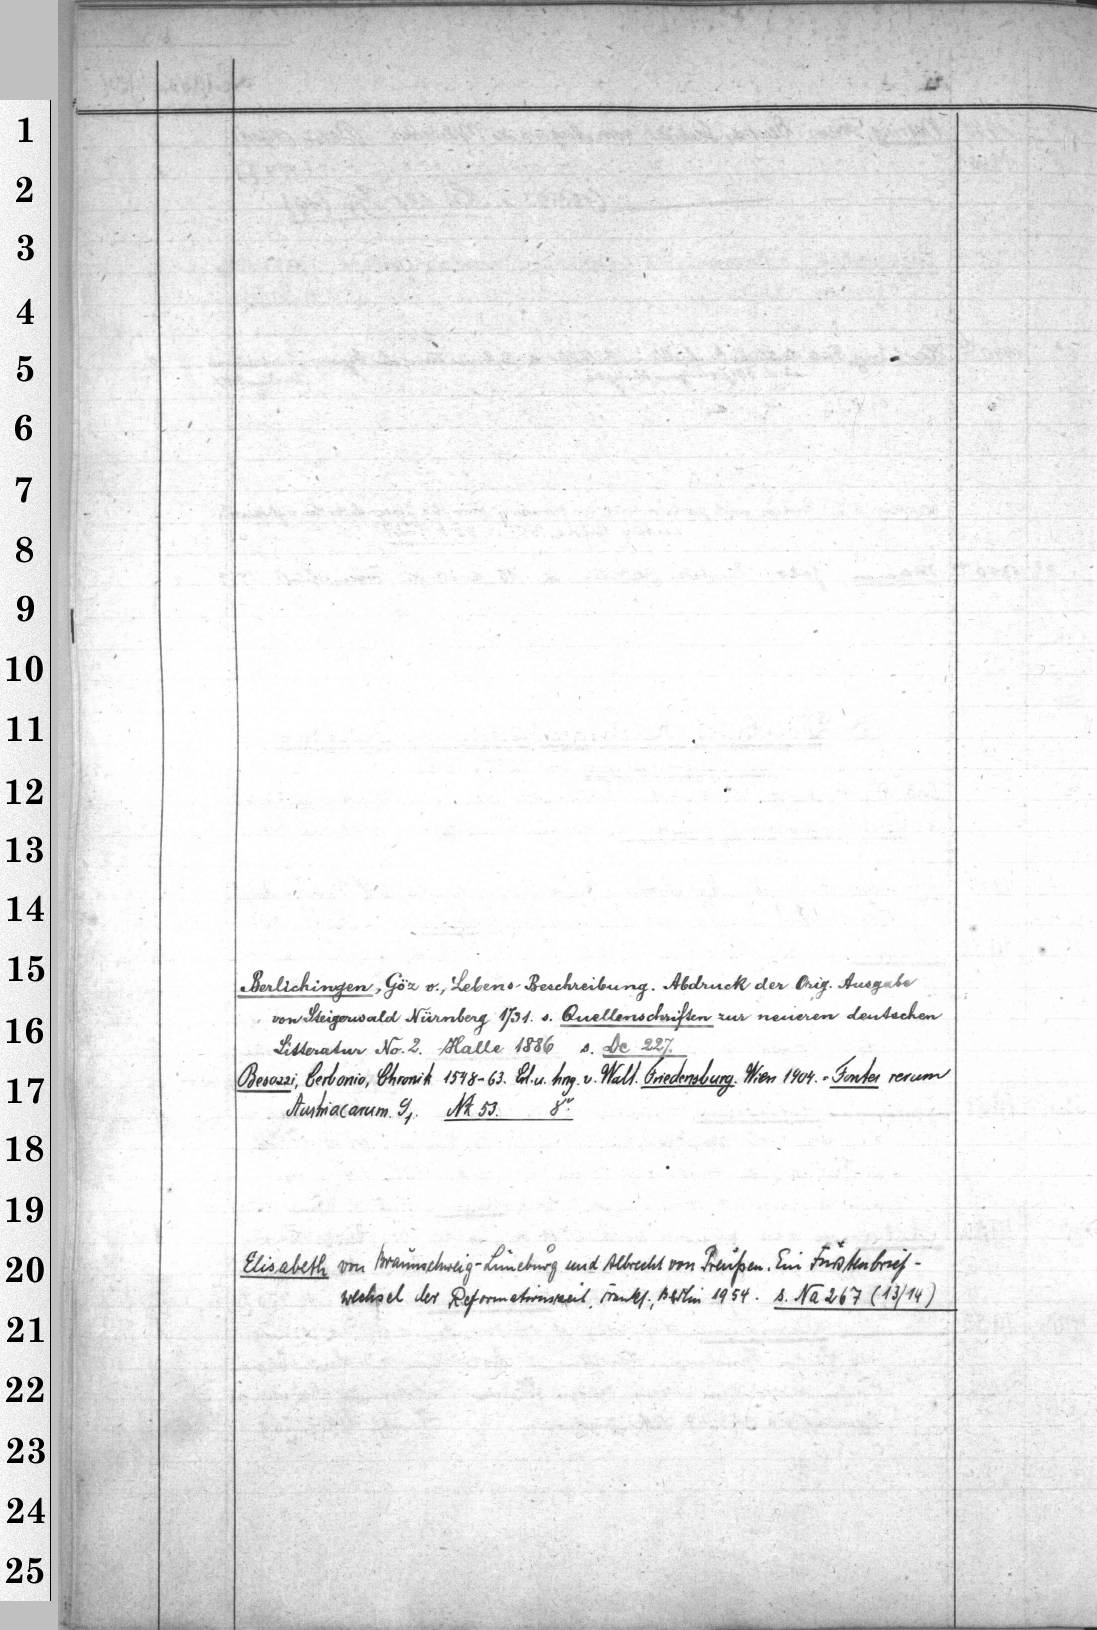 1
2
3
4
5
6
7
8
9
10
11
12
13
14
15
Berlichingen, Göz v., Lebens-Beschreibung. Abdruck der Orig. Ausgabe
von Steigerwald Nürnberg 1731. s. Quellenschriften zur neueren deutschen
16
Litteratur No. 2. Halle 1886 s. De 227.
Besozzi, Cerbonio, Chronik 1548-63. Erl. u. hrsg. v. Walt. Friedensburg. Wien 1904. = Fontes rerum
17
Austriacarum. Nk 53. 8°.
18
19
20
Elisabeth von Braunschweig-Lüneburg und Albrecht von Preußen. Ein Fürstenbrief-
wechsel der Reformationszeit, Frankf., Berlin 1954. s. Na 267 (13/14)
21
22
23
24
25